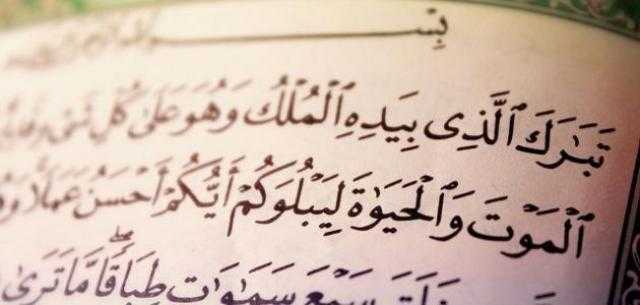 بِسْ
تَبَٰرَكَ ٱلَّذِى بِيَدِهِ ٱلْمُلْكُ وَهُوَ عَلَىٰ كُلِّ شَىْءٍ
ٱلْمَوْتَ وَٱلْحَيَوٰةَ لِيَبْلُوَكُمْ أَيُّكُمْ أَحْسَنُ عَمَلًا
سَبْعَ سَمَٰوَٰتٍ طِبَاقًا مَّا تَرَىٰ